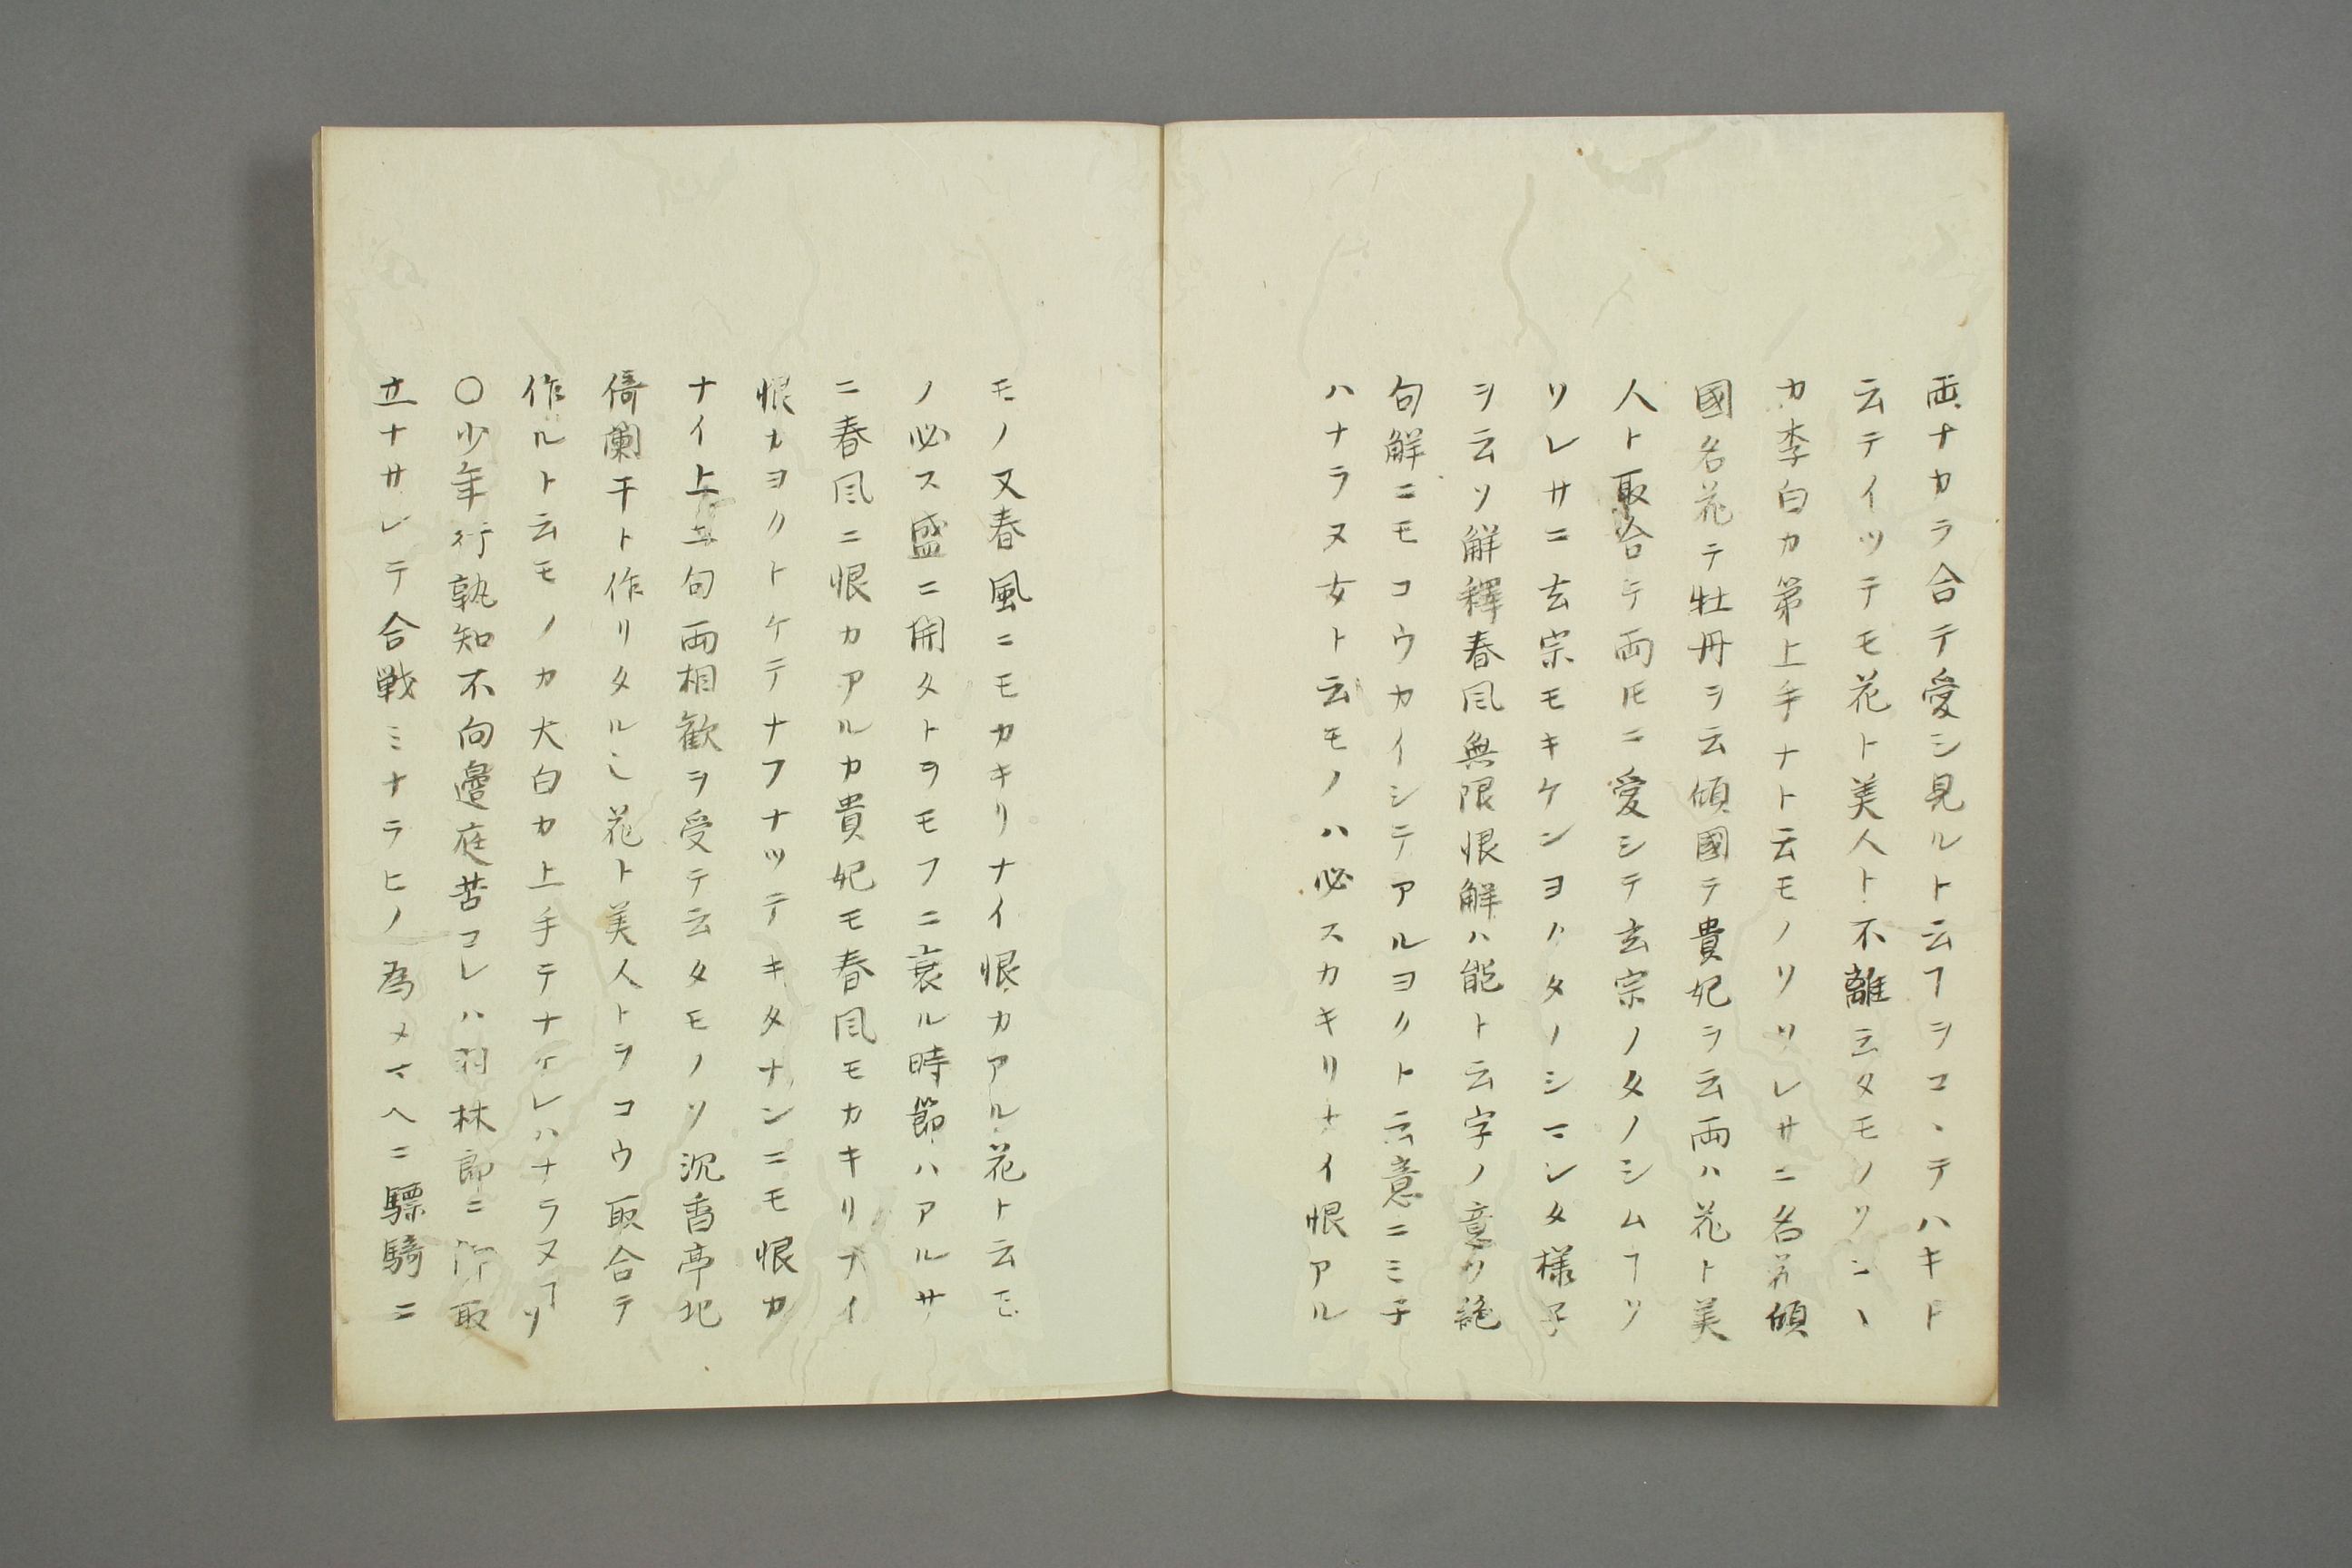 両ナカラ合テ愛シ見ルト云ヿヲコヽテハキト
云テイツテモ花ト美人ト不離云タモノソコヽ
カ李白カ第上手ナト云モノソソレサニ名花傾
國名花テ牡丹ヲ云傾國テ貴妃ヲ云両ハ花ト美
人ト取合テ両𪜈ニ愛シテ玄宗ノタノシムヿソ
ソレサニ玄宗モキケンヨクタノシマレタ様子
ヲ云ソ解釋春風無限恨解ハ能ト云字ノ意ソ絶
句解ニモコウカイシテアルヨクト云意ニミヨ
ハナラヌ女ト云モノハ必スカキリナイ恨アル
モノ又春風ニモカキリナイ恨カアル花ト云モ
ノ必ス盛ニ開タトヲモフニ衰ル時節ハアルサ
ニ春風ニ恨カアルカ貴妃モ春風モカキリナイ
恨カヨクトケテナフナツテキタナンニモ恨カ
ナイ上二句両相歓ヲ受テ云タモノソ沉香亭北
倚闌干ト作リタル也花ト美人トヲコウ取合テ
作ルト云モノカ大白カ上手テナケレハナラヌヿソ
〇少年行孰知不向邊庭苦コレハ羽林郎ニ御取
立ナサレテ合戦ミナラヒノ為メマヘニ驃騎ニ